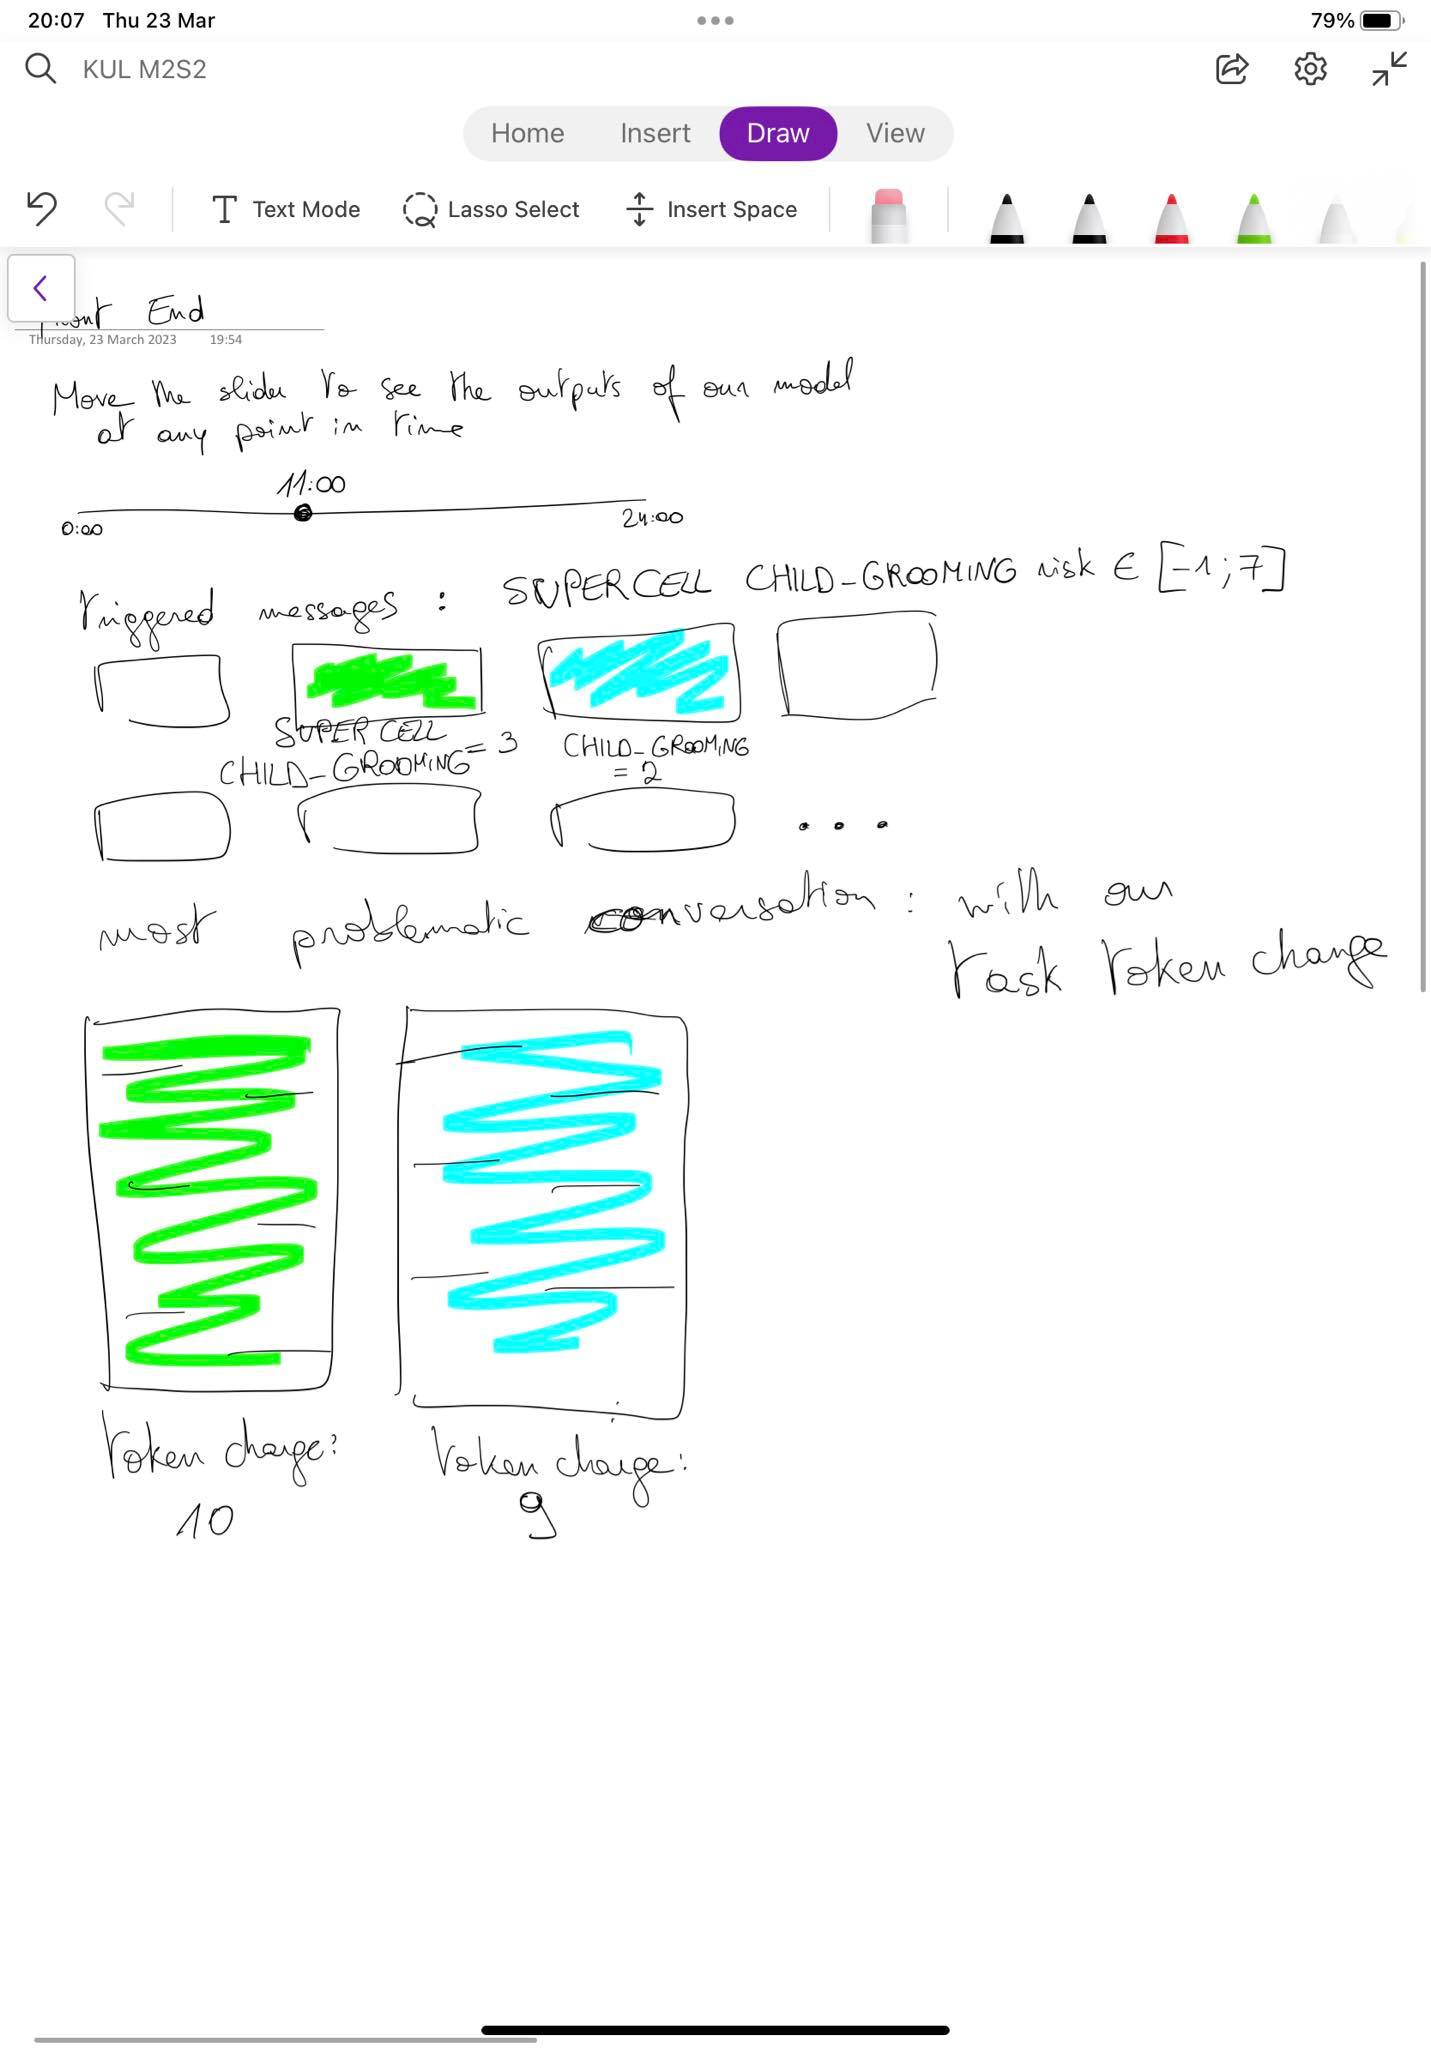 20:07 Thu 23 Mar
79%
KUL M2S2
Home Insert Draw View
Text Mode Lasso Select Insert Space
End
Thursday, 23 March 2023 19:54
Move the slider to see the outputs of our model
at any point in time
11:00
0:00 24:00
Triggered messages : SUPERCELL CHILD-GROOMING risk ∈ [-1;7]
SUPERCELL
CHILD-GROOMING = 3
CHILD-GROOMING
= 2
...
most problematic conversation : with our
task token change
Token change:
10
Token change:
9